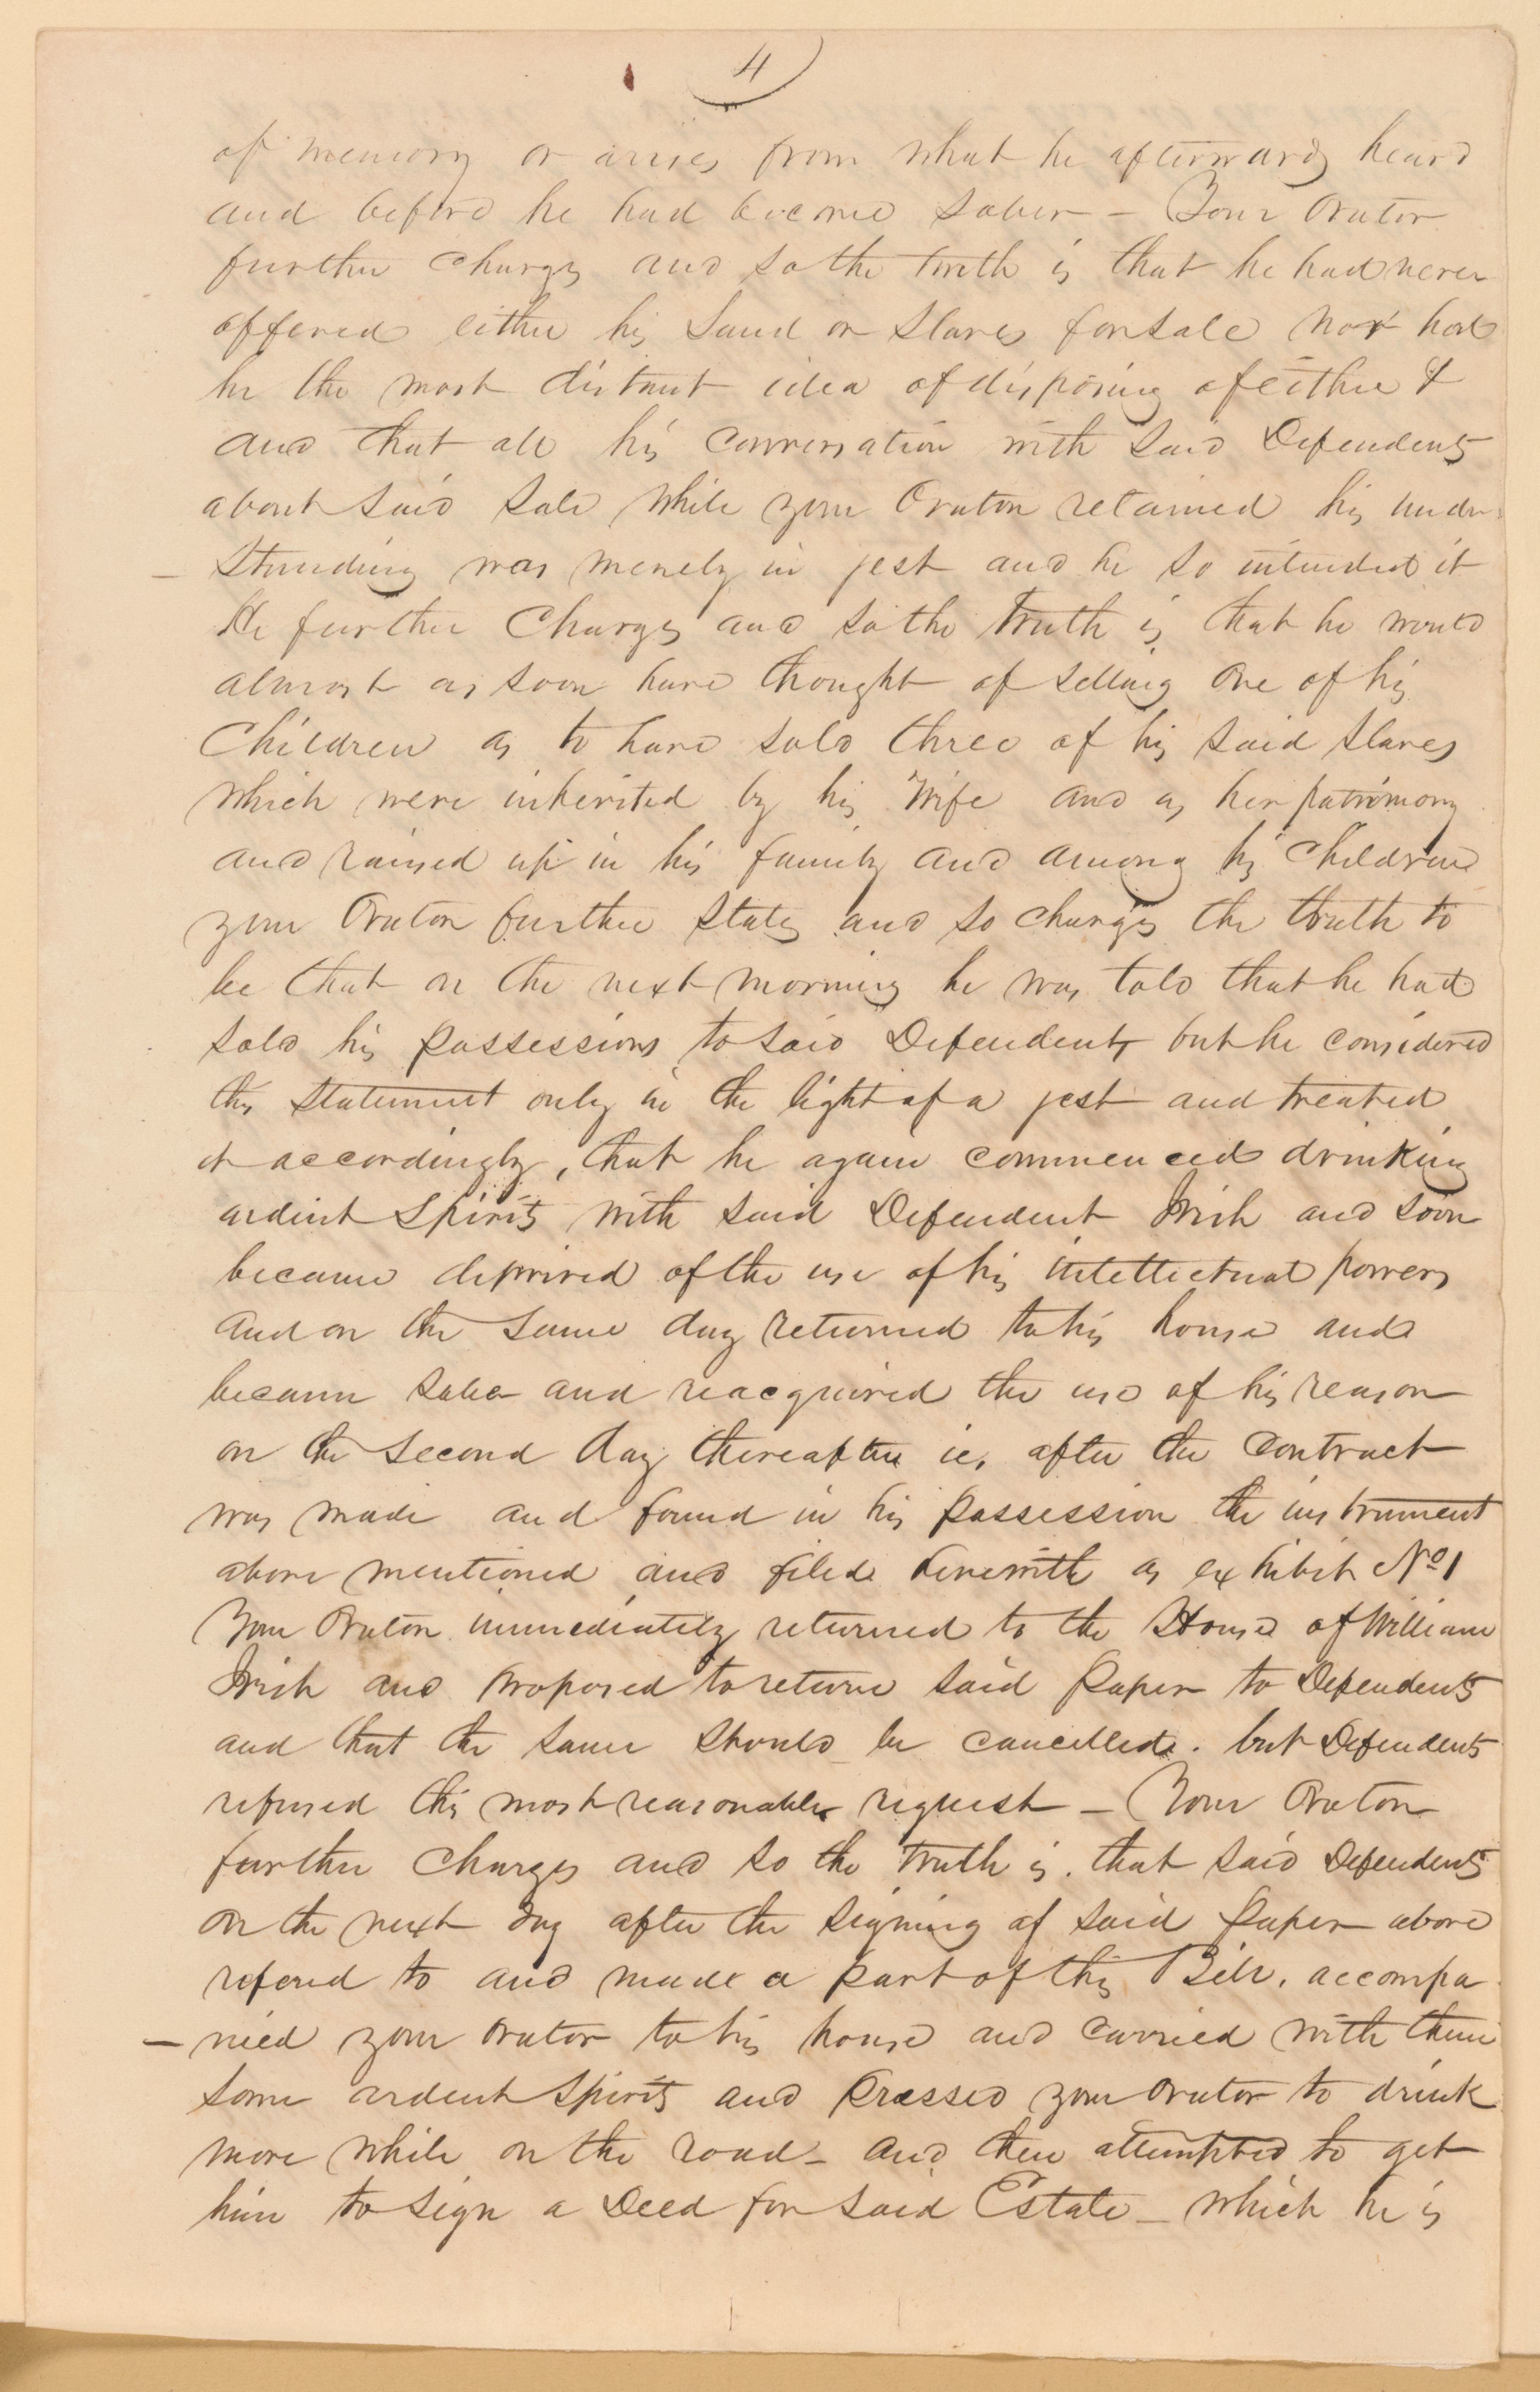 4
of memory or arises from what he afterwards heard
and before he had become sober – Your Orator
further charges and so the truth is that he had never
offered either his Land or Slaves for sale nor had
he the most distant idea of disposing of either &
and that all his conversation with said Defendents
about said sale while your Orator retained his under
– standing was merely in jest and he so intended it
He further Charges and so the truth is that he would
almost as soon have thought of selling one of his
Children as to have sold three of his said slaves
which were inherited by his Wife and as her patrimony
and raised up in his family and among his Children
your Orator further states and so charges the truth to
be that on the next morning he was told that he had
sold his possessions to said Defendents but he considered
this statement only in the light of a jest and treated
it accordingly, that he again commenced drinking
ardent Spirits with said Defendent Irish and soon
became deprived of the use of his intellectual powers
and on the same day returned to his house and
became sober and reacquired the use of his reason
on the second day thereafter ie, after the Contract
was made and found in his possession the instrument
above mentioned and filed herewith as exhibit No 1
Your Orator immediately returned to the House of William
Irish and proposed to return said Paper to Defendents
and that the same should be cancelled. but Defendents
refused this most reasonable request – Your Orator
further charges and so the truth is. that said Defendents
on the next day after the signing of said Paper above
refered to and made a part of this Bill. accompa
– nied your Orator to his house and carried with them
some ardent Spirits and pressed your Orator to drink
more while on the road – and then attempted to get
him to sign a Deed for said Estate – which he is